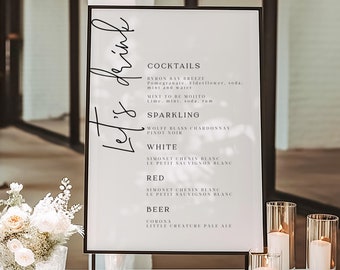 Let's drink
COCKTAILS
BYRON BAY BREEZE
Pomegranate, Elderflower, soda,
mint and water
MINT TO BE MOJITO
Lime, mint, soda, rum
SPARKLING
WOLFF BLASS CHARDONNAY
PINOT NOIR
WHITE
SIMONET CHENIN BLANC
LE PETIT SAUVIGNON BLANC
RED
SIMONET CHENIN BLANC
LE PETIT SAUVIGNON BLANC
BEER
CORONA
LITTLE CREATURE PALE ALE